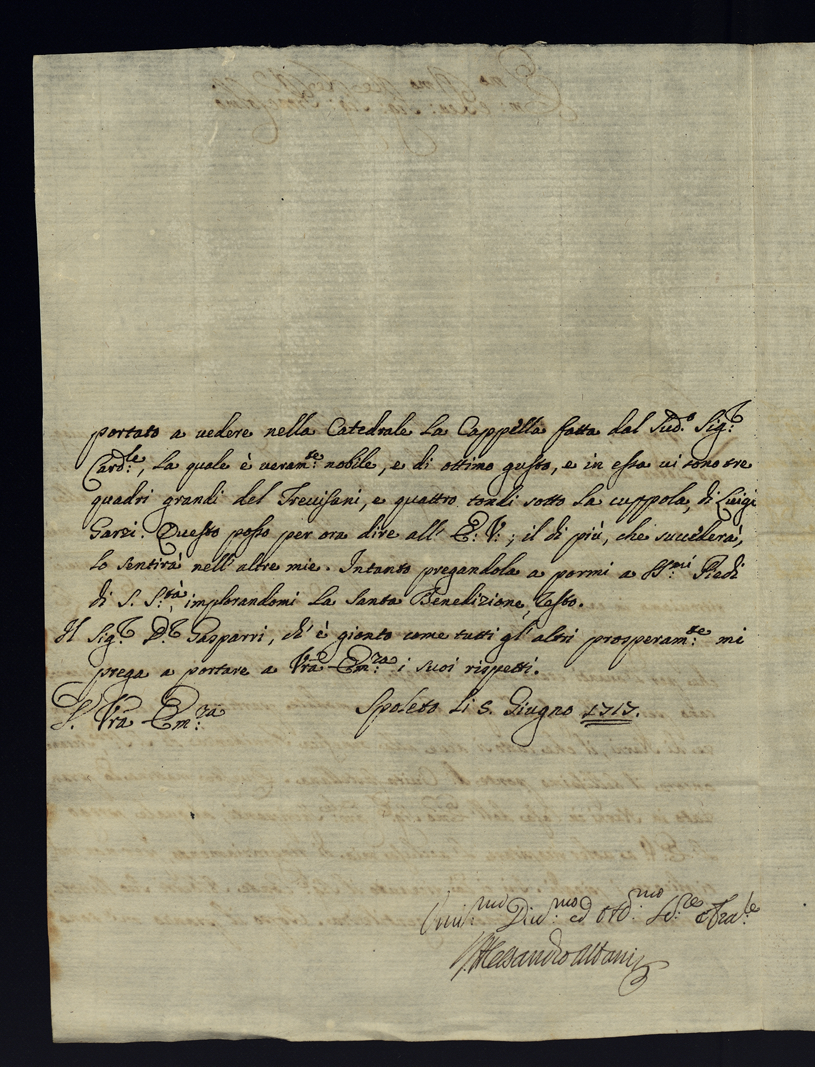 portato a vedere nella Catedrale la Cappella fatta dal Sud.º Sig.r
Card.le, la quale è veram.te nobile, e di ottimo gusto, e in essa vi sono tre
quadri grandi del Trevisani, e quattro tondi sotto la cuppola, di Luigi
Garzi. Questo posso per ora dire all' E: V:; il di più, che succederà,
lo sentirà nell'altre mie. Intanto pregandola a pormi a SS.mi Piedi
di S. S.tà, implorandomi la Santa Benedizione, resto.
Il Sig.r D.r Gasparri, ch'è gionto come tutti gl'altri prosperam.te mi
prega a portare a Vra Em.za i suoi rispetti.
D. Vra Em.za Spoleto li 5. Giugno 1717.
Umil.mo Div.mo ed Obb.mo Ser.re e Fra.le
Alessandro Albani